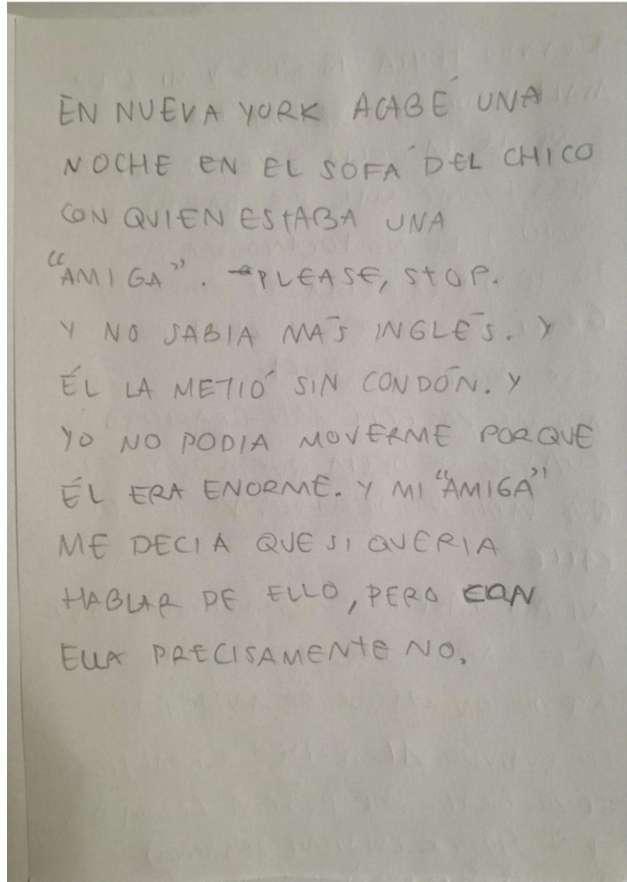 EN NUEVA YORK ACABÉ UNA
NOCHE EN EL SOFÁ DEL CHICO
CON QUIEN ESTABA UNA
"AMIGA". -PLEASE, STOP.
Y NO SABIA MÁS INGLÉS. Y
ÉL LA METIÓ SIN CONDÓN. Y
YO NO PODIA MOVERME PORQUE
ÉL ERA ENORME. Y MI "AMIGA"
ME DECIA QUE SI QUERIA
HABLAR DE ELLO, PERO CON
ELLA PRECISAMENTE NO.